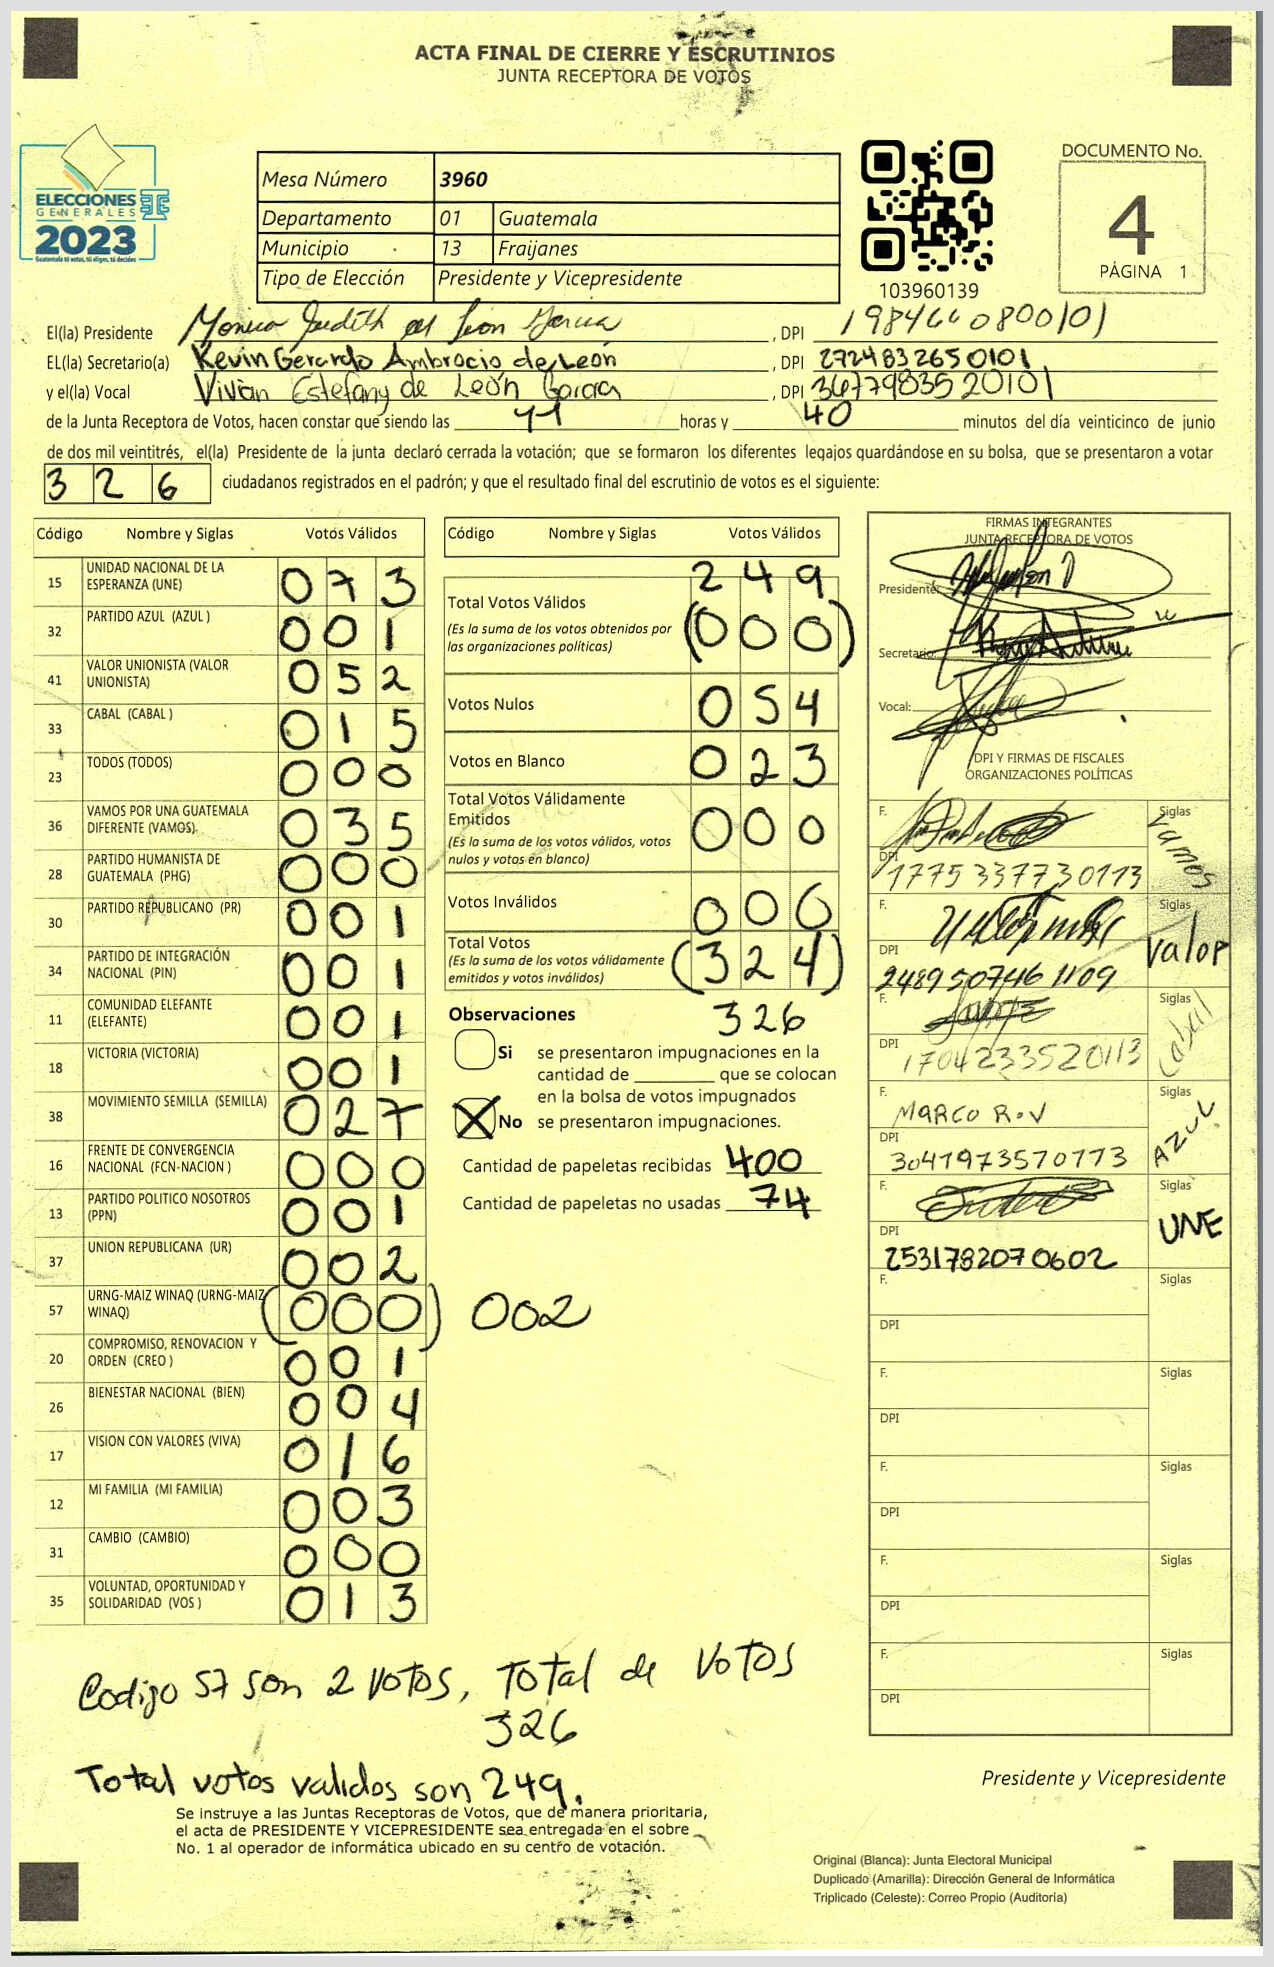 ACTA FINAL DE CIERRE Y ESCRUTINIOS
JUNTA RECEPTORA DE VOTOS
ELECCIONES
GENERALES
2023
Guatemala tú votas, tú eliges, tú decides
Mesa Número 3960
Departamento 01 Guatemala
Municipio 13 Fraijanes
Tipo de Elección Presidente y Vicepresidente
103960139
DOCUMENTO No.
4
PÁGINA 1
El(la) Presidente Monica Judith de León Garcia , DPI 1984660800101
EL(la) Secretario(a) Kevin Gerardo Ambrocio de León , DPI 2724832650101
y el(la) Vocal Vivian Estefany de León Garcia , DPI 3677983520101
de la Junta Receptora de Votos, hacen constar que siendo las horas y 40 minutos del día veinticinco de junio
de dos mil veintitrés, el(la) Presidente de la junta declaró cerrada la votación; que se formaron los diferentes legajos guardándose en su bolsa, que se presentaron a votar
326 ciudadanos registrados en el padrón; y que el resultado final del escrutinio de votos es el siguiente:
Código Nombre y Siglas Votos Válidos
15 UNIDAD NACIONAL DE LA ESPERANZA (UNE) 073
32 PARTIDO AZUL (AZUL ) 001
41 VALOR UNIONISTA (VALOR UNIONISTA) 052
33 CABAL (CABAL ) 015
23 TODOS (TODOS) 000
36 VAMOS POR UNA GUATEMALA DIFERENTE (VAMOS) 035
28 PARTIDO HUMANISTA DE GUATEMALA (PHG) 000
30 PARTIDO REPUBLICANO (PR) 001
34 PARTIDO DE INTEGRACIÓN NACIONAL (PIN) 001
11 COMUNIDAD ELEFANTE (ELEFANTE) 001
18 VICTORIA (VICTORIA) 001
38 MOVIMIENTO SEMILLA (SEMILLA) 027
16 FRENTE DE CONVERGENCIA NACIONAL (FCN-NACION ) 000
13 PARTIDO POLITICO NOSOTROS (PPN) 001
37 UNION REPUBLICANA (UR) 002
57 URNG-MAIZ WINAQ (URNG-MAIZ WINAQ) (000) 002
20 COMPROMISO, RENOVACION Y ORDEN (CREO ) 001
26 BIENESTAR NACIONAL (BIEN) 004
17 VISION CON VALORES (VIVA) 016
12 MI FAMILIA (MI FAMILIA) 003
31 CAMBIO (CAMBIO) 000
35 VOLUNTAD, OPORTUNIDAD Y SOLIDARIDAD (VOS ) 013
Código Nombre y Siglas Votos Válidos
249
Total Votos Válidos (000)
(Es la suma de los votos obtenidos por
las organizaciones políticas)
Votos Nulos 054
Votos en Blanco 023
Total Votos Válidamente
Emitidos 000
(Es la suma de los votos válidos, votos
nulos y votos en blanco)
Votos Inválidos 000
Total Votos (324)
(Es la suma de los votos válidamente
emitidos y votos inválidos)
326
Observaciones
Si se presentaron impugnaciones en la
cantidad de ________ que se colocan
en la bolsa de votos impugnados
X No se presentaron impugnaciones.
Cantidad de papeletas recibidas 400
Cantidad de papeletas no usadas 74
FIRMAS INTEGRANTES
JUNTA RECEPTORA DE VOTOS
Presidente:
Secretario:
Vocal:
DPI Y FIRMAS DE FISCALES
ORGANIZACIONES POLÍTICAS
F. Siglas Vamos
DPI 1775337730113
F. Siglas Valor
DPI 2489507461109
F. Siglas Cabal
DPI 1704233520113
F. MARCO R.V Siglas AZUL
DPI 3041973570113
F. Siglas UNE
DPI 2531782070602
F. Siglas
DPI
F. Siglas
DPI
F. Siglas
DPI
F. Siglas
DPI
F. Siglas
DPI
Codigo 57 son 2 votos, Total de Votos
326
Total votos validos son 249.
Presidente y Vicepresidente
Se instruye a las Juntas Receptoras de Votos, que de manera prioritaria,
el acta de PRESIDENTE Y VICEPRESIDENTE sea entregada en el sobre
No. 1 al operador de informática ubicado en su centro de votación.
Original (Blanca): Junta Electoral Municipal
Duplicado (Amarilla): Dirección General de Informática
Triplicado (Celeste): Correo Propio (Auditoria)